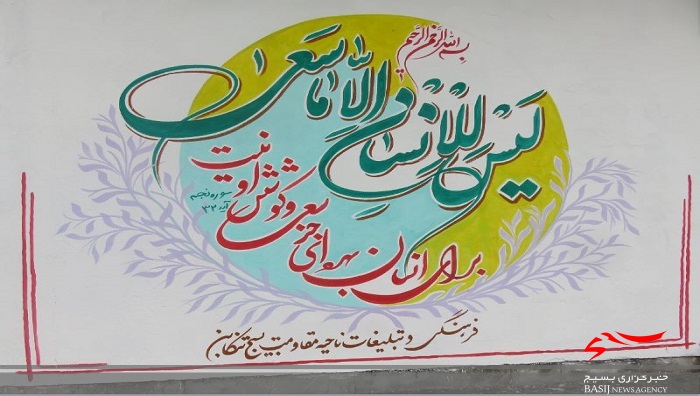 بسم الله الرحمن الرحیم
لَیْسَ لِلْاِنْسانِ اِلّا ما سَعی
برای انسان بهره‌ای جز سعی و کوشش او نیست
سوره نجم
آیه ۳۲
فرهنگی و تبلیغات ناحیه مقاومت بسیج تنکابن
خبرگزاری بسیج
BASIJ NEWS AGENCY